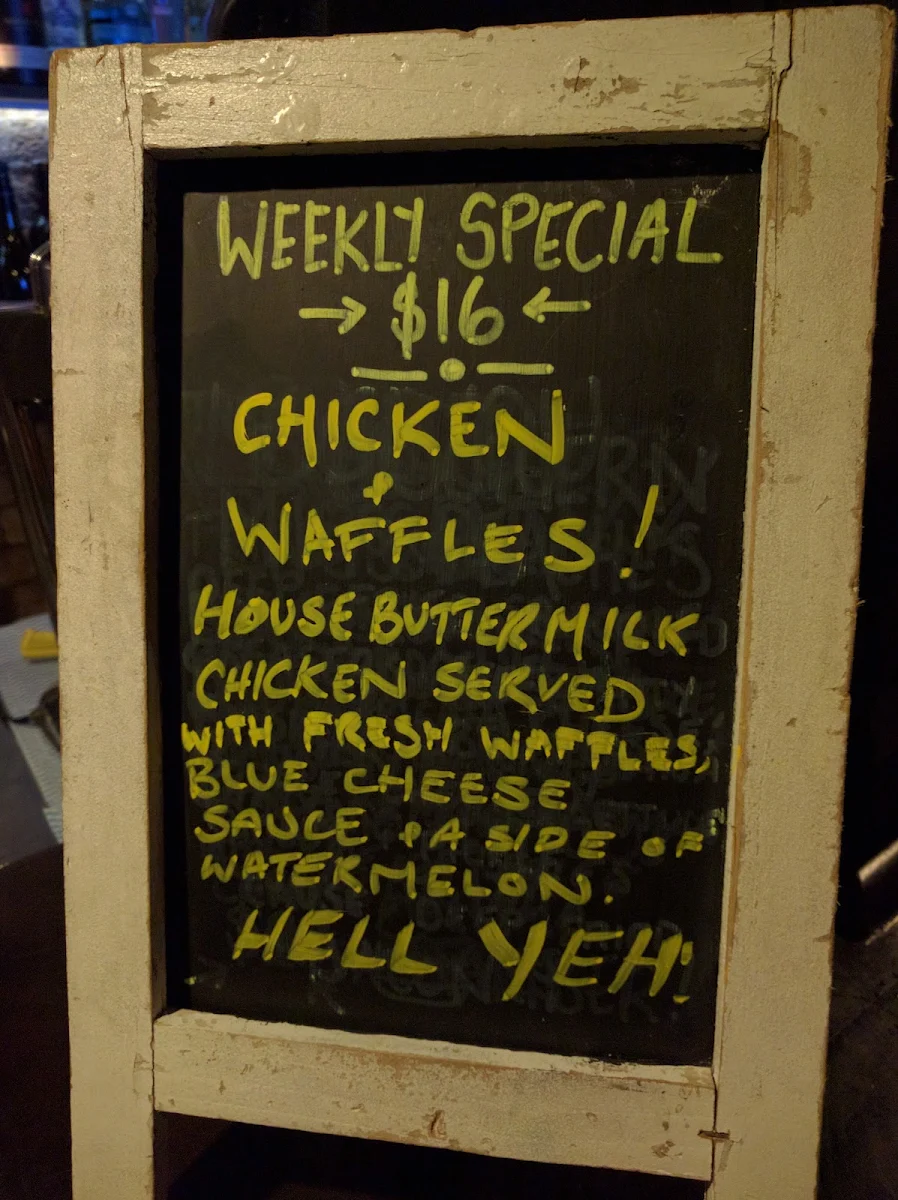 WEEKLY SPECIAL
→ $16 ←
CHICKEN
&
WAFFLES!
HOUSE BUTTERMILK
CHICKEN SERVED
WITH FRESH WAFFLES,
BLUE CHEESE
SAUCE & A SIDE OF
WATERMELON.
HELL YEH!